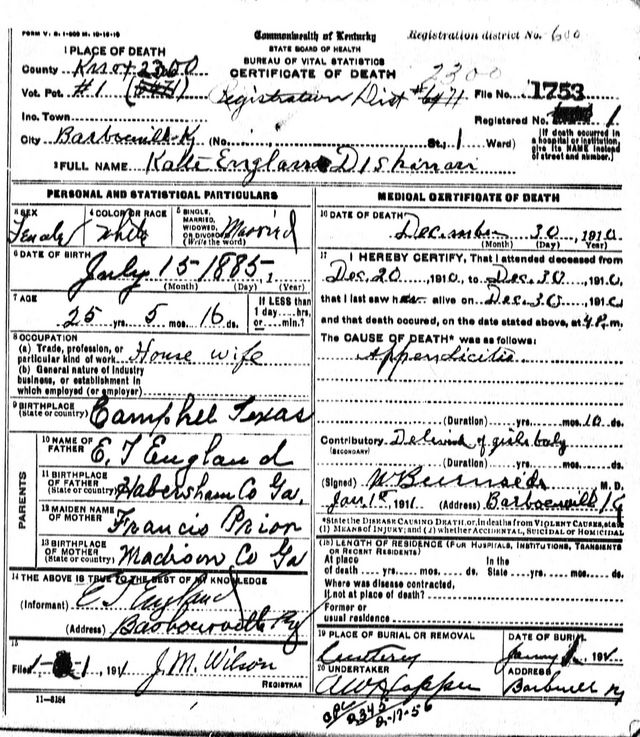 FORM V. S. 1-500 M. 10-18-10
Commonwealth of Kentucky
Registration district No. 600
STATE BOARD OF HEALTH
BUREAU OF VITAL STATISTICS
CERTIFICATE OF DEATH
1 PLACE OF DEATH
County Knox 2300
2300
Vot. Pct. #1 (6471)
Registration Dist #6471 File No. 1753
Inc. Town
Registered No. 1
City Barbourville Ky (No. St., 1 Ward)
[If death occurred in a hospital or institution, give its NAME instead of street and number.]
2 FULL NAME Kate England Diskinson
PERSONAL AND STATISTICAL PARTICULARS
3 SEX
Female
4 COLOR OR RACE
White
5 SINGLE, MARRIED, WIDOWED, OR DIVORCED (Write the word)
Married
6 DATE OF BIRTH
July 15-1885, 1
(Month) (Day) (Year)
7 AGE
25 yrs. 5 mos. 16 ds.
If LESS than 1 day....hrs. or....min.?
8 OCCUPATION
(a) Trade, profession, or particular kind of work House wife
(b) General nature of industry business, or establishment in which employed (or employer)
9 BIRTHPLACE
(State or country) Campbell Texas
PARENTS
10 NAME OF FATHER E. T England
11 BIRTHPLACE OF FATHER (State or country) Habersham Co Ga.
12 MAIDEN NAME OF MOTHER Francis Prior
13 BIRTHPLACE OF MOTHER (State or country) Madison Co Ga
14 THE ABOVE IS TRUE TO THE BEST OF MY KNOWLEDGE
(Informant) E T England
(Address) Barbourville Ky
15
Filed 1- 1 191 J. M. Wilson
REGISTRAR
11-5184
MEDICAL CERTIFICATE OF DEATH
16 DATE OF DEATH
December 30, 1910
(Month) (Day) (Year)
17 I HEREBY CERTIFY, That I attended deceased from
Dec 20 1910, to Dec. 30, 1910,
that I last saw her alive on Dec. 30, 1910,
and that death occured, on the date stated above, at 4 P. m.
The CAUSE OF DEATH* was as follows:
Appendicitis
(Duration) yrs. mos. 10 ds.
Contributory Deliverd of girls baby
(SECONDARY)
(Duration) yrs. mos. ds.
(Signed) M. D.
Jan 1st, 1911. (Address) Barbourvill Ky
*State the DISEASE CAUSING DEATH, or, in deaths from VIOLENT CAUSES, state
(1) MEANS OF INJURY; and (2) whether ACCIDENTAL, SUICIDAL or HOMICIDAL
(18) LENGTH OF RESIDENCE (FOR HOSPITALS, INSTITUTIONS, TRANSIENTS OR RECENT RESIDENTS)
At place of death yrs. mos. ds. In the State yrs. mos. ds.
Where was disease contracted,
If not at place of death?
Former or usual residence
19 PLACE OF BURIAL OR REMOVAL
Cemetery
DATE OF BURIAL
191
20 UNDERTAKER
ADDRESS
Barbourvill Ky
2345
2-17-56